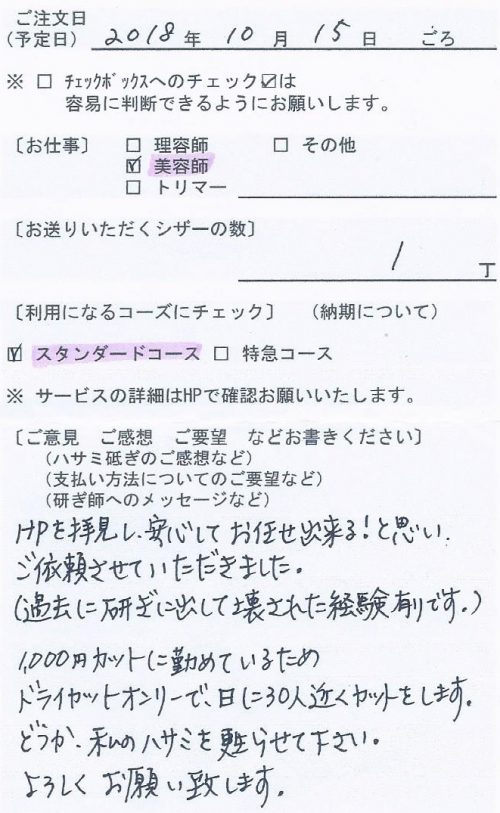 ご注文日
(予定日) 2018年 10月 15日 ごろ
※ □ ﾁｪｯｸﾎﾞｯｸｽへのチェック☑は
容易に判断できるようにお願いします。
〔お仕事〕 □ 理容師 □ その他
☑ 美容師
□ トリマー
〔お送りいただくシザーの数〕
1 丁
〔利用になるコーズにチェック〕 (納期について)
☑ スタンダードコース □ 特急コース
※ サービスの詳細はHPで確認お願いいたします。
〔ご意見 ご感想 ご要望 などお書きください〕
(ハサミ砥ぎのご感想など)
(支払い方法についてのご要望など)
(研ぎ師へのメッセージなど)
HPを拝見し、安心してお任せ出来る!と思い、
ご依頼させていただきました。
(過去に研ぎに出して壊された経験有りです。)
1,000円カットに勤めているため
ドライカットオンリーで、日に30人近くカットをします。
どうか、私のハサミを甦らせて下さい。
よろしくお願い致します。